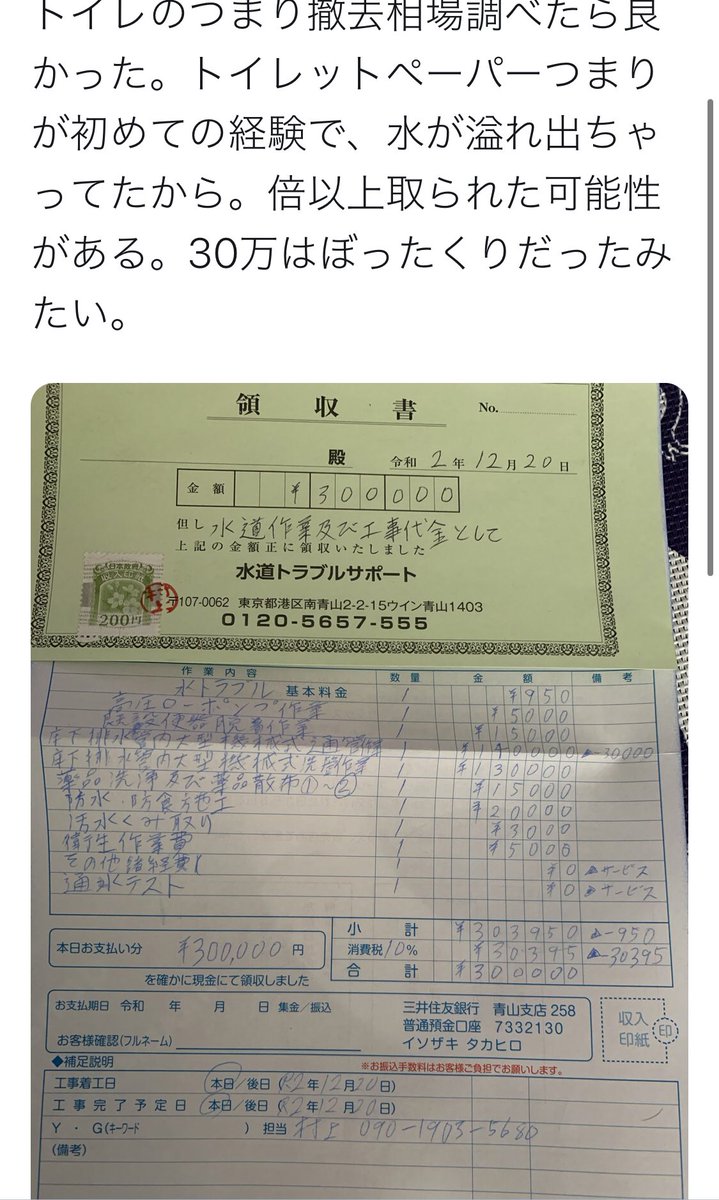 トイレのつまり撤去相場調べたら良
かった。トイレットペーパーつまり
が初めての経験で、水が溢れ出ちゃ
ってたから。倍以上取られた可能性
がある。30万はぼったくりだったみ
たい。
領収書 No.
殿 令和 2年 12月 20日
金額 ¥300000
但し 水道作業及び工事代金として
上記の金額正に領収いたしました
水道トラブルサポート
日本政府
収入印紙
200円
〒107-0062 東京都港区南青山2-2-15ウイン青山1403
0120-5657-555
作業内容 数量 金額 備考
水トラブル 基本料金 1 ¥950
高圧ローポンプ作業 1 ¥5000
既設便器脱着作業 1 ¥15000
床下排水管内大型機械式通管作業 1 ¥140000 ▲-30000
床下排水管内大型機械式洗管作業 1 ¥130000
薬品洗浄及び薬品散布①~② 1 ¥15000
防水・防食施工 1 ¥20000
汚水くみ取り 1 ¥3000
衛生作業費 1 ¥5000
その他諸経費 1 ¥0 ▲サービス
通水テスト 1 ¥0 ▲サービス
小計 ¥303950 ▲-950
本日お支払い分 ¥300,000円 消費税10% ¥30395 ▲-30395
を確かに現金にて領収しました 合計 ¥300000
お支払期日 令和 年 月 日 集金/振込 三井住友銀行 青山支店 258
普通預金口座 7332130
お客様確認(フルネーム) イソザキ タカヒロ
収入
印紙
印
◆補足説明 ※お振込手数料はお客様ご負担でお願いします。
工事着工日 本日/後日 (R2年12月20日)
工事完了予定日 本日/後日 (R2年12月20日)
Y・G(キーワード ) 担当 村上 090-1903-5680
(備考)